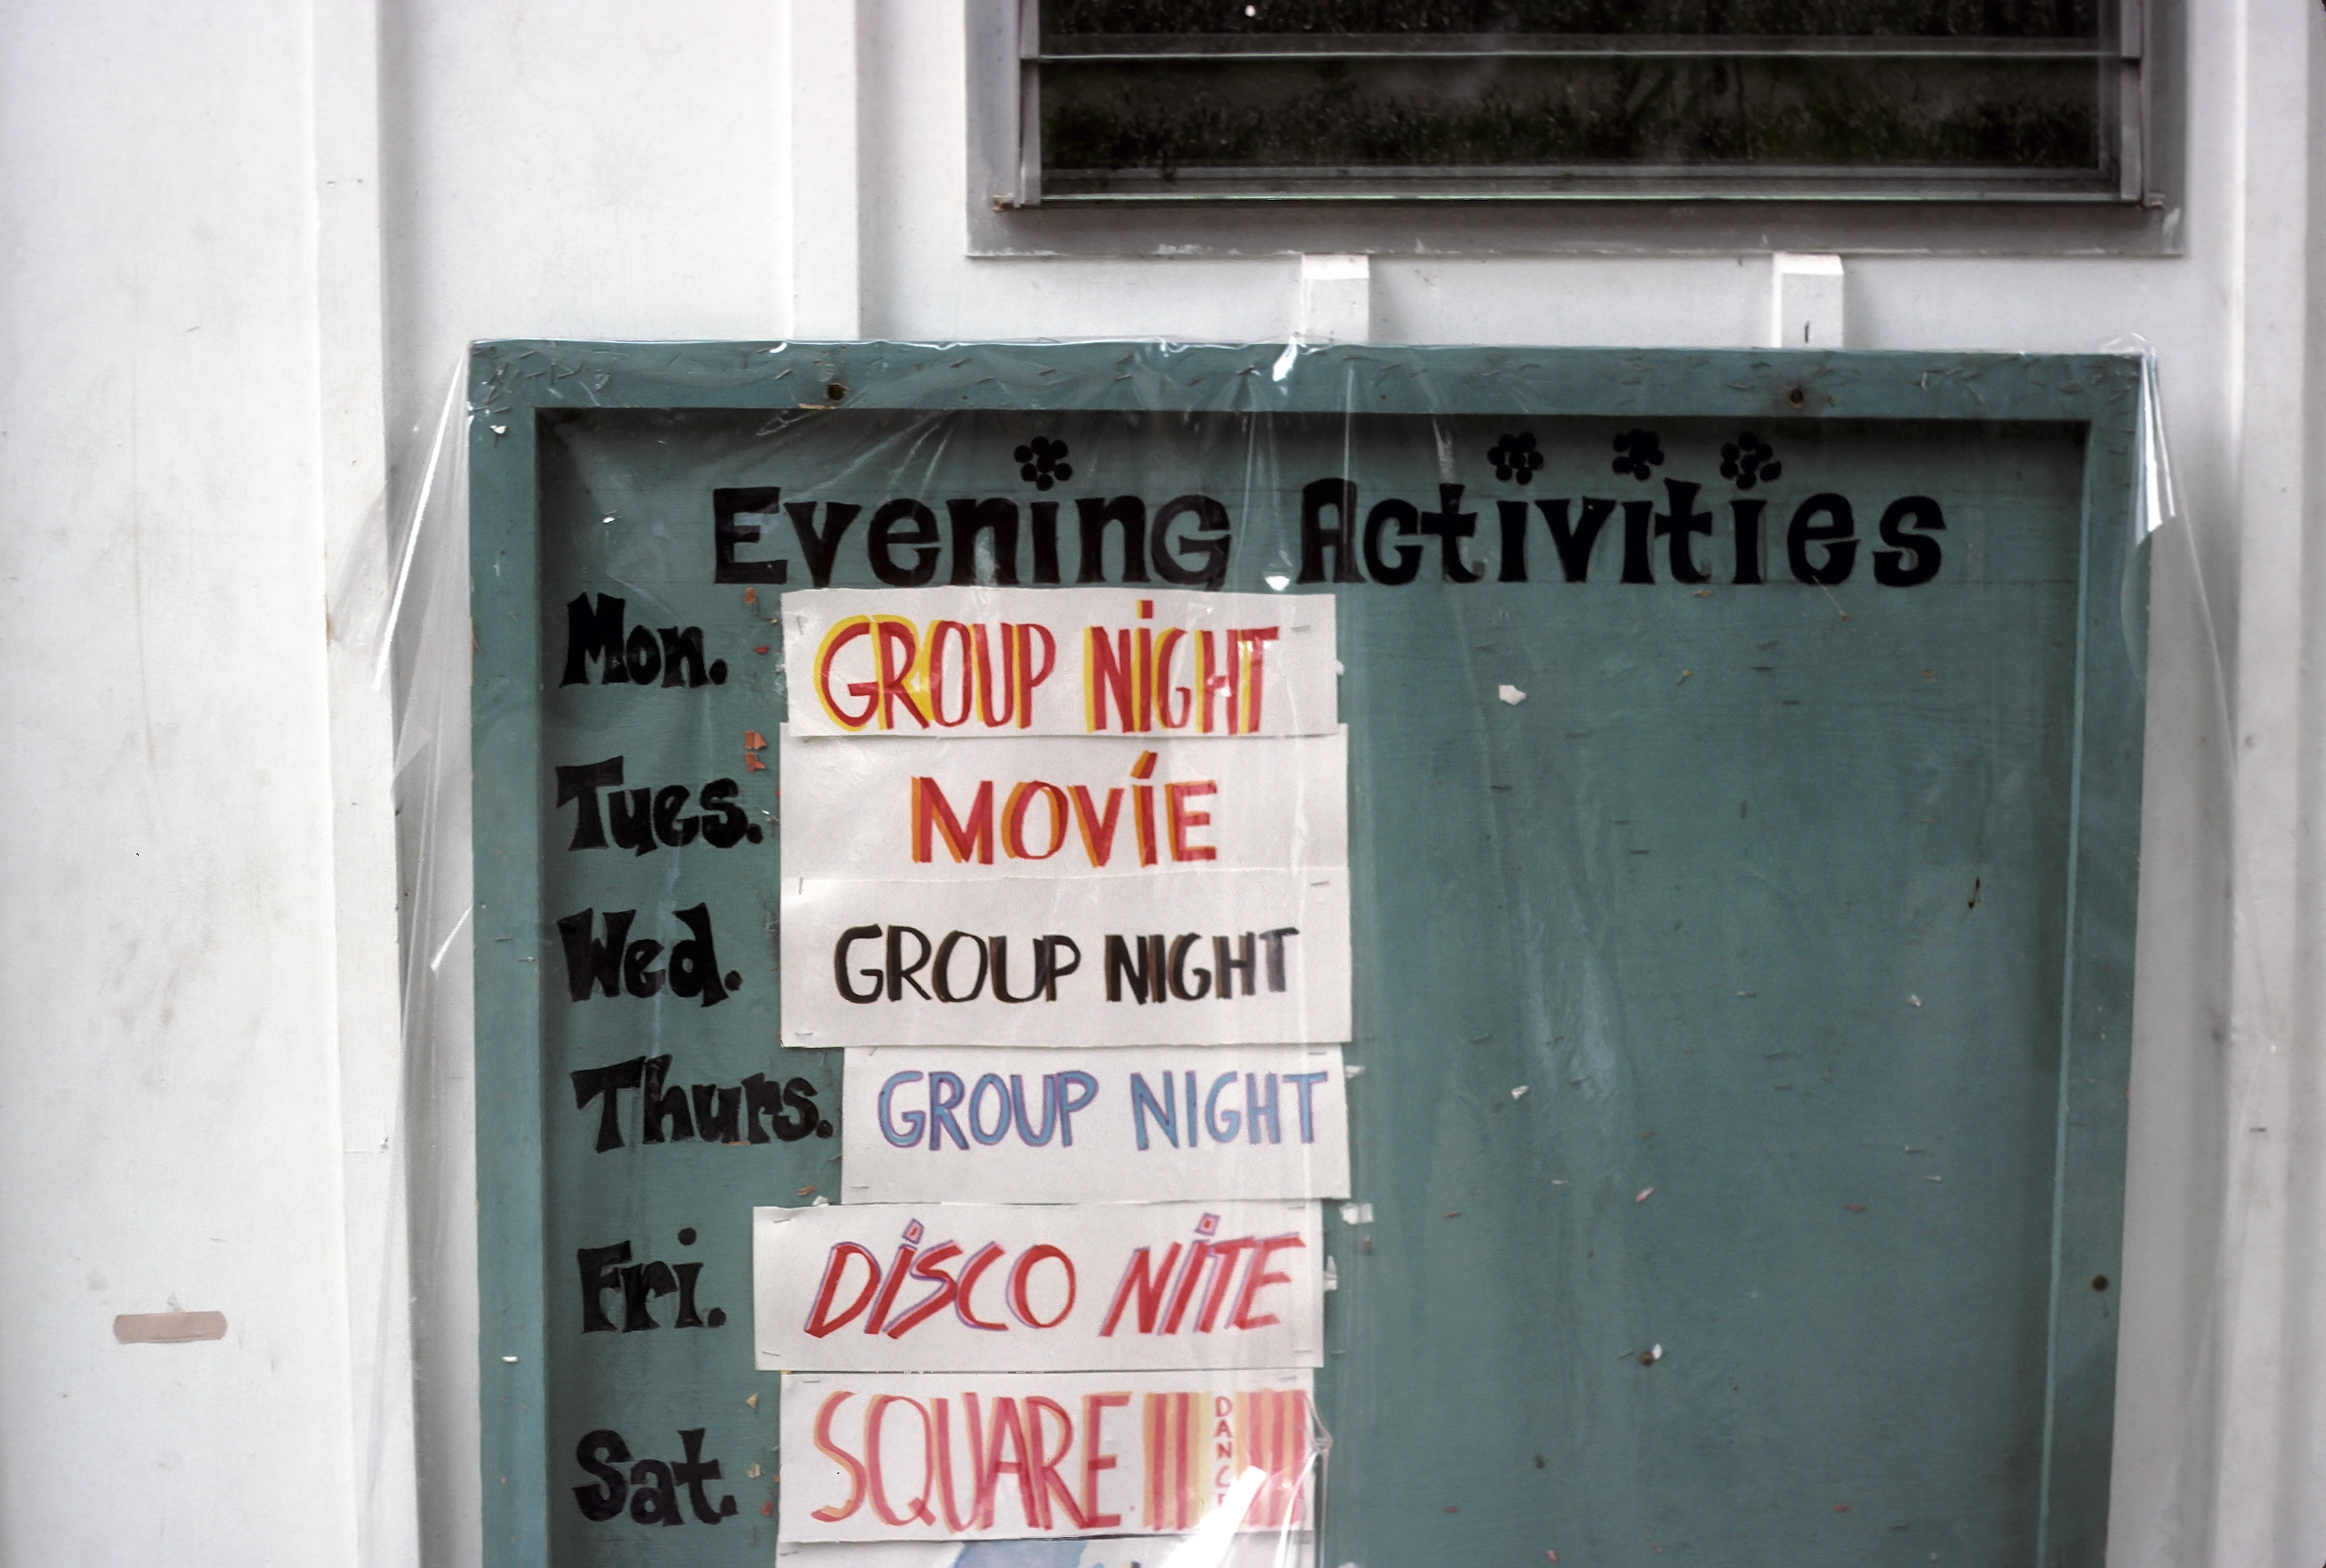 Evening Activities
Mon. GROUP NIGHT
Tues. MOVIE
Wed. GROUP NIGHT
Thurs. GROUP NIGHT
Fri. DISCO NITE
Sat. SQUARE DANCE